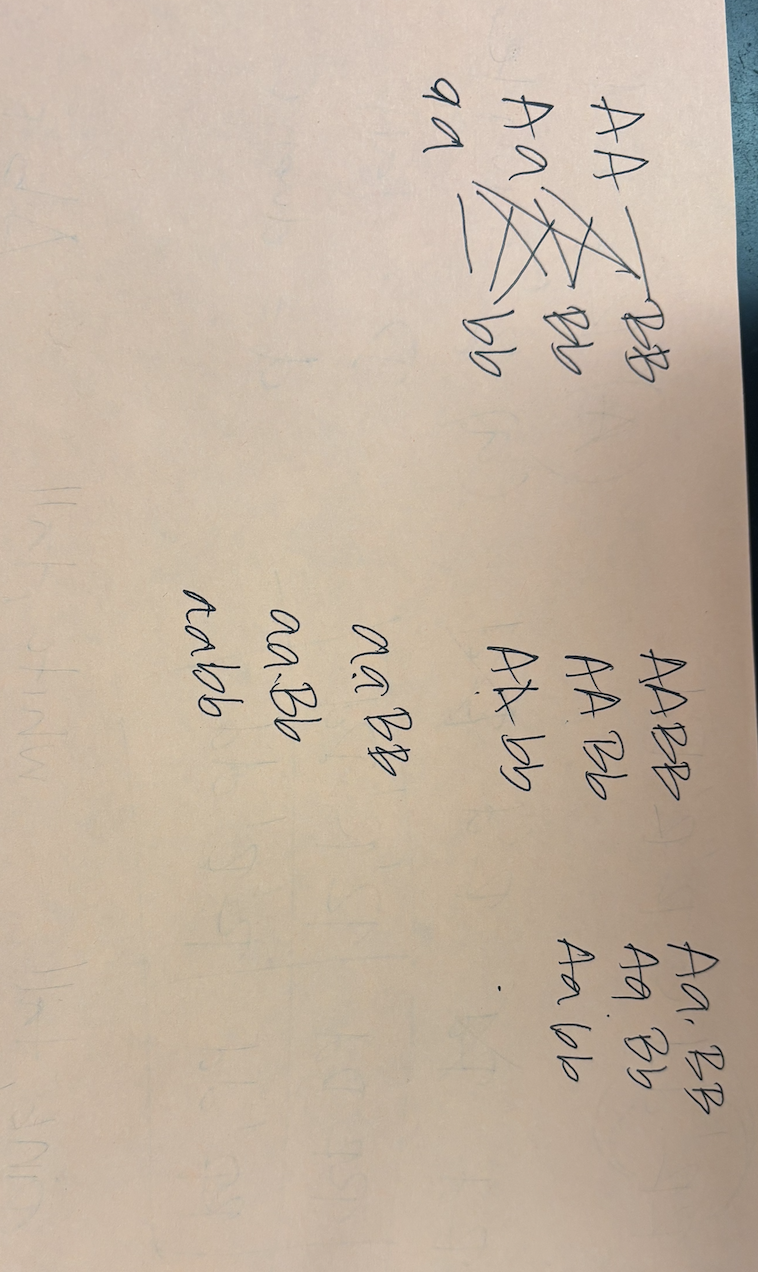 AA BB
Aa Bb
aa bb
AABB
AA Bb
AA bb
Aa BB
Aa Bb
Aa bb
aa BB
aa Bb
aabb